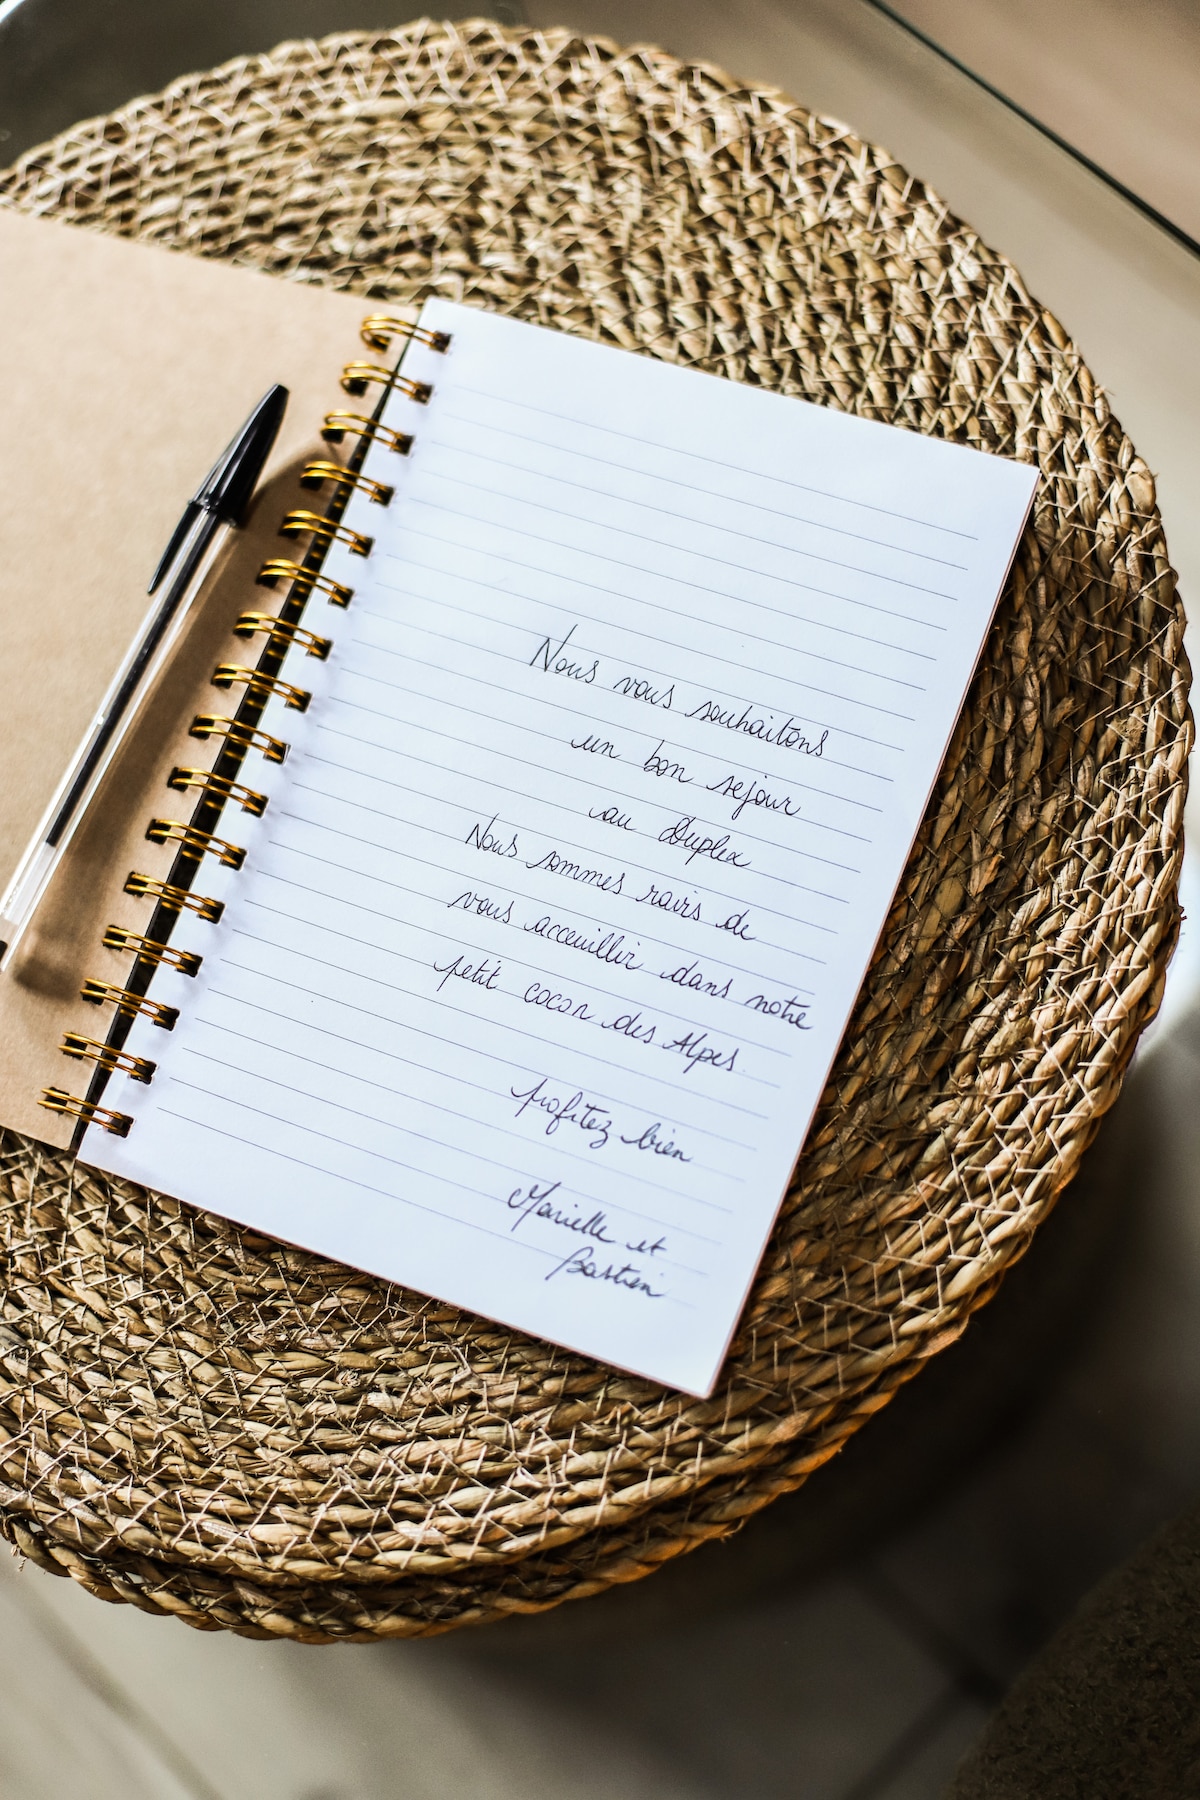 Nous vous souhaitons
un bon sejour
au Duplex
Nous sommes ravis de
vous acceuillir dans notre
petit cocon des Alpes.
profitez bien
Marielle et
Bastien